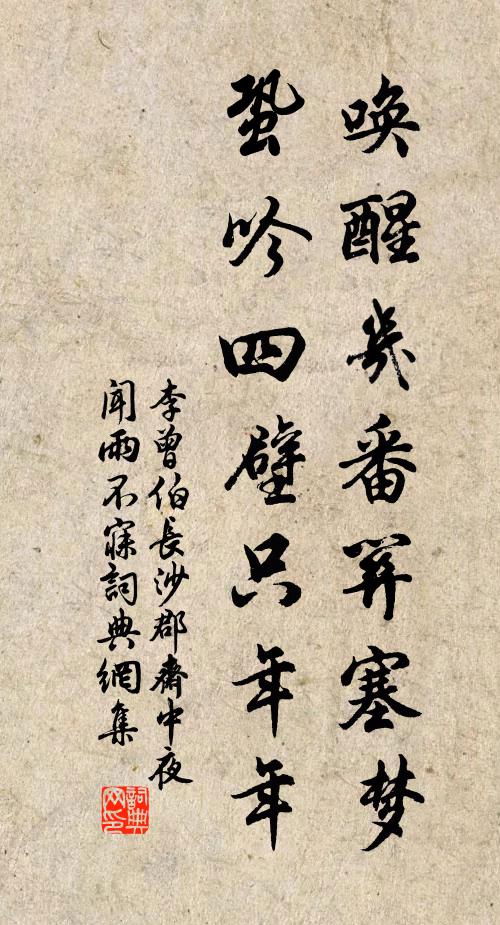 唤醒几番关塞梦
蛩吟四壁只年年
李曾伯長沙郡齋中夜
闻雨不寐詞典網集
詞典网印